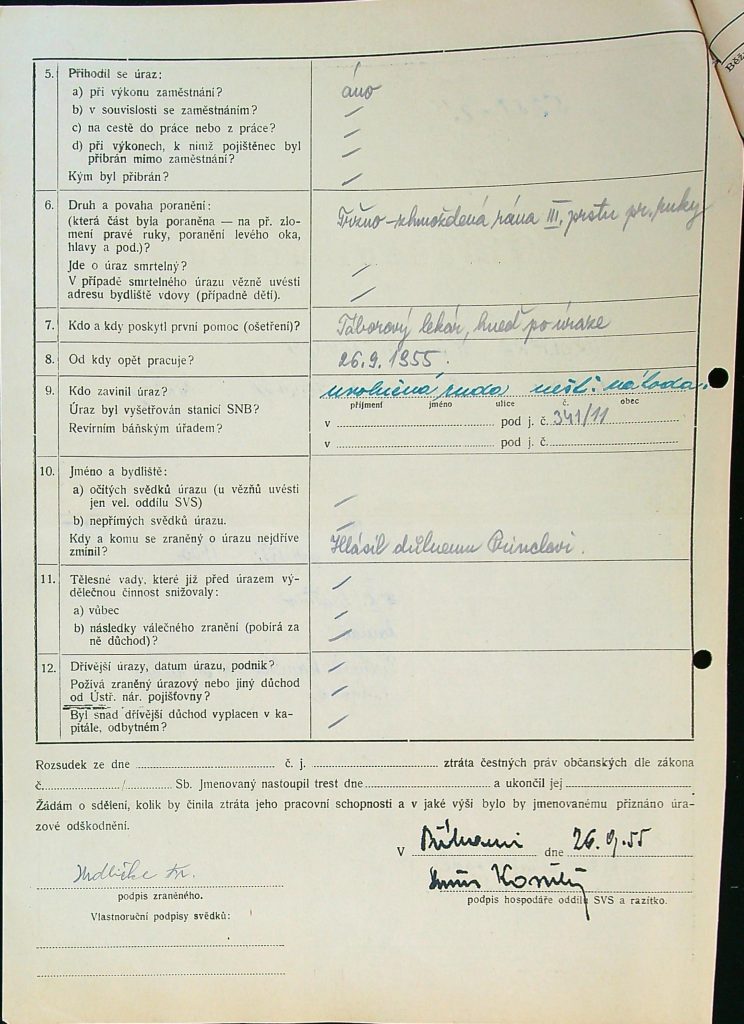 Běž
5. Přihodil se úraz:
a) při výkonu zaměstnání? áno
b) v souvislosti se zaměstnáním? /
c) na cestě do práce nebo z práce? /
d) při výkonech, k nimž pojištěnec byl
přibrán mimo zaměstnání? /
Kým byl přibrán? /
6. Druh a povaha poranění:
(která část byla poraněna — na př. zlo-
mení pravé ruky, poranění levého oka,
hlavy a pod.)?
Tržno-zhmoždená rána III. prstu pr. ruky
Jde o úraz smrtelný? /
V případě smrtelného úrazu vězně uvésti
adresu bydliště vdovy (případně dětí). /
7. Kdo a kdy poskytl první pomoc (ošetření)? Táborový lekár, hneď po úraze
8. Od kdy opět pracuje? 26.9.1955.
9. Kdo zavinil úraz? nešť. náhoda.
příjmení jméno ulice č. obec
Úraz byl vyšetřován stanicí SNB? v pod j. č. 341/11
Revírním báňským úřadem? v pod j. č.
10. Jméno a bydliště:
a) očitých svědků úrazu (u vězňů uvésti
jen vel. oddílu SVS) /
b) nepřímých svědků úrazu. /
Kdy a komu se zraněný o úrazu nejdříve
zmínil? Hlásil důlnemu
11. Tělesné vady, které již před úrazem vý-
dělečnou činnost snižovaly: /
a) vůbec /
b) následky válečného zranění (pobírá za
ně důchod)? /
12. Dřívější úrazy, datum úrazu, podnik? /
Požívá zraněný úrazový nebo jiný důchod
od Ústř. nár. pojišťovny? /
Byl snad dřívější důchod vyplacen v ka-
pitále, odbytném? /
Rozsudek ze dne č. j. ztráta čestných práv občanských dle zákona
č. / Sb. Jmenovaný nastoupil trest dne a ukončil jej
Žádám o sdělení, kolik by činila ztráta jeho pracovní schopnosti a v jaké výši bylo by jmenovanému přiznáno úra-
zové odškodnění.
V dne 26.9.55
podpis zraněného.
podpis hospodáře oddílu SVS a razítko.
Vlastnoruční podpisy svědků: